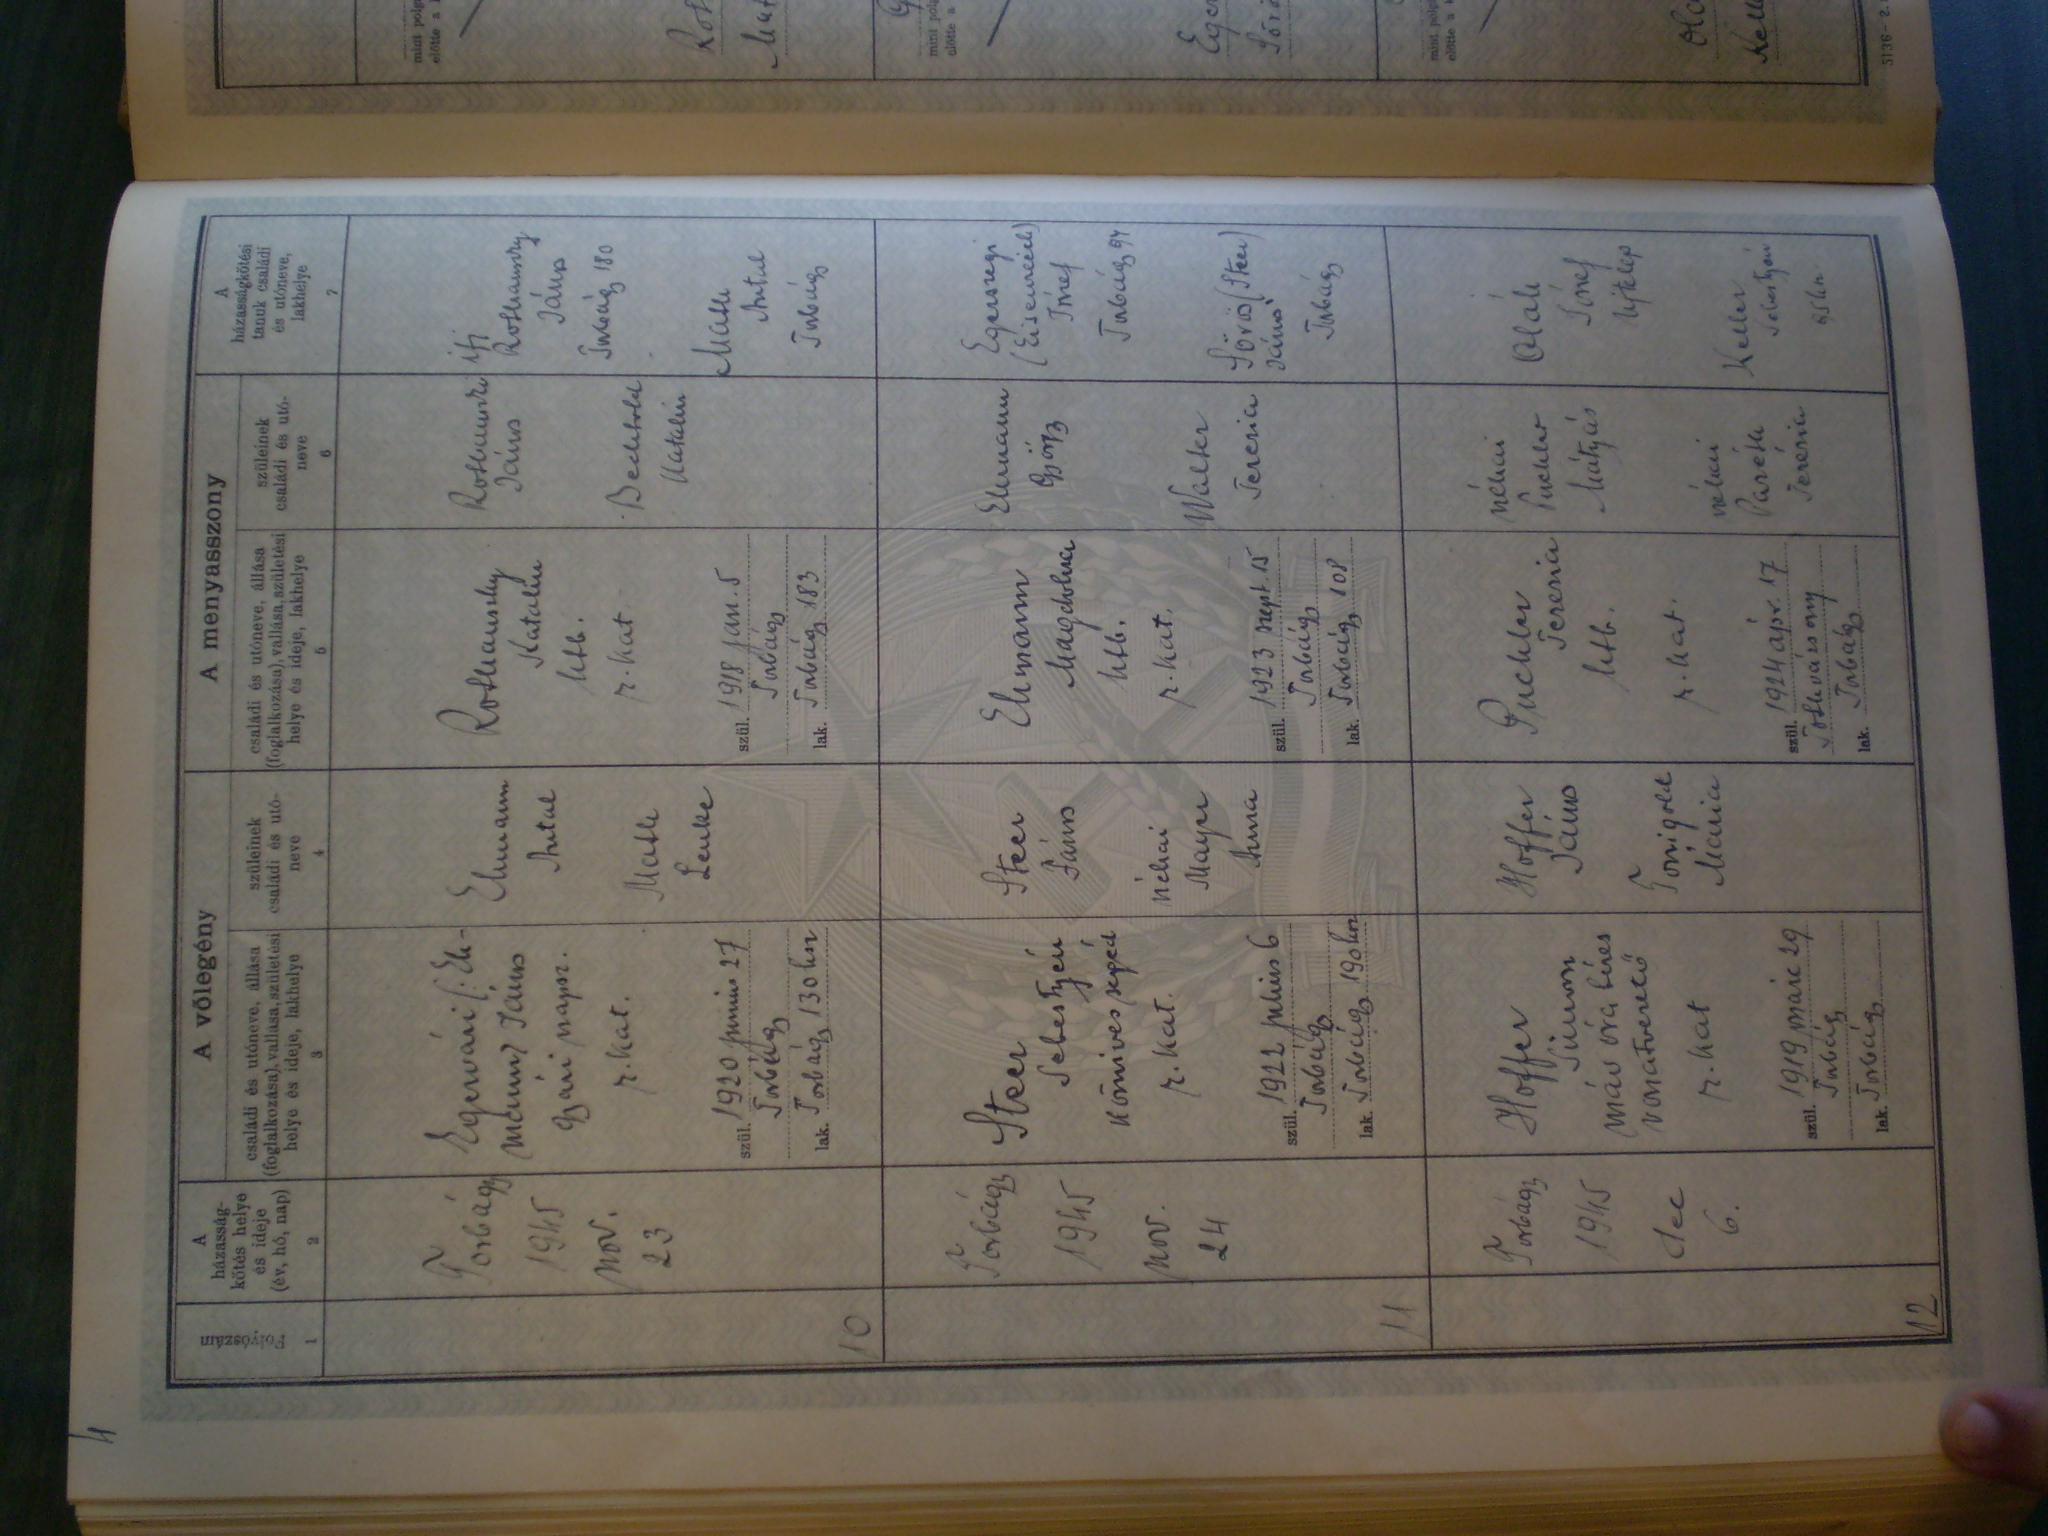 4
A vőlegény
A menyasszony
Folyószám
A
házasság-
kötés helye
és ideje
(év, hó, nap)
családi és utóneve, állása
(foglalkozása), vallása, születési
helye és ideje, lakhelye
szüleinek
családi és utó-
neve
családi és utóneve, állása
(foglalkozása), vallása, születési
helye és ideje, lakhelye
szüleinek
családi és utó-
neve
A
házasságkötési
tanuk családi
és utóneve,
lakhelye
1
2
3
4
5
6
7
10
Torbágy
1945
nov.
23
Egervári (: Eh-
mann) János
gyári naps.
r. kat.
szül. 1920 junius 27
Torbágy
lak. Torbágy 130 hsz
Ehmann
Antal
Math
Lenke
Rothauszky
Katalin
htb.
r. kat.
szül. 1918 jan. 5
Torbágy
lak. Torbágy 183
János
Bechtold
Katalin
ifj
Rothauszky
János
Torbágy 180
Math
Antal
Torbágy
11
Torbágy
1945
nov.
24
Steer
Sebestyén
kőmives segéd
r. kat.
szül. 1922 julius 6
Torbágy
lak. Torbágy 190 hsz
Steer
János
néhai
Mayer
Anna
Ehmann
Magdolna
htb.
r. kat.
szül. 1923 szept. 15
Torbágy
lak. Torbágy 108
Ehmann
György
Walter
Terézia
Egerszegi
József
Torbágy 94
Sörös (Steer)
János
Torbágy
12
Torbágy
1945
dec
6.
Hoffer
Simon
máv óra béres
vonatvezető
r. kat
szül. 1919 márc 29
Torbágy
lak. Torbágy
Hoffer
János
Mária
Puchler
Terézia
htb.
r. kat.
szül. 1924 ápr. 17
lak. Torbágy
néhai
Puchler
Mátyás
néhai
Terézia
Oláh
József
Ujtelep
Keller
Sebestyén
mint polg
előtte a
mint polg
előtte a
mint polg
előtte a
5136-2.